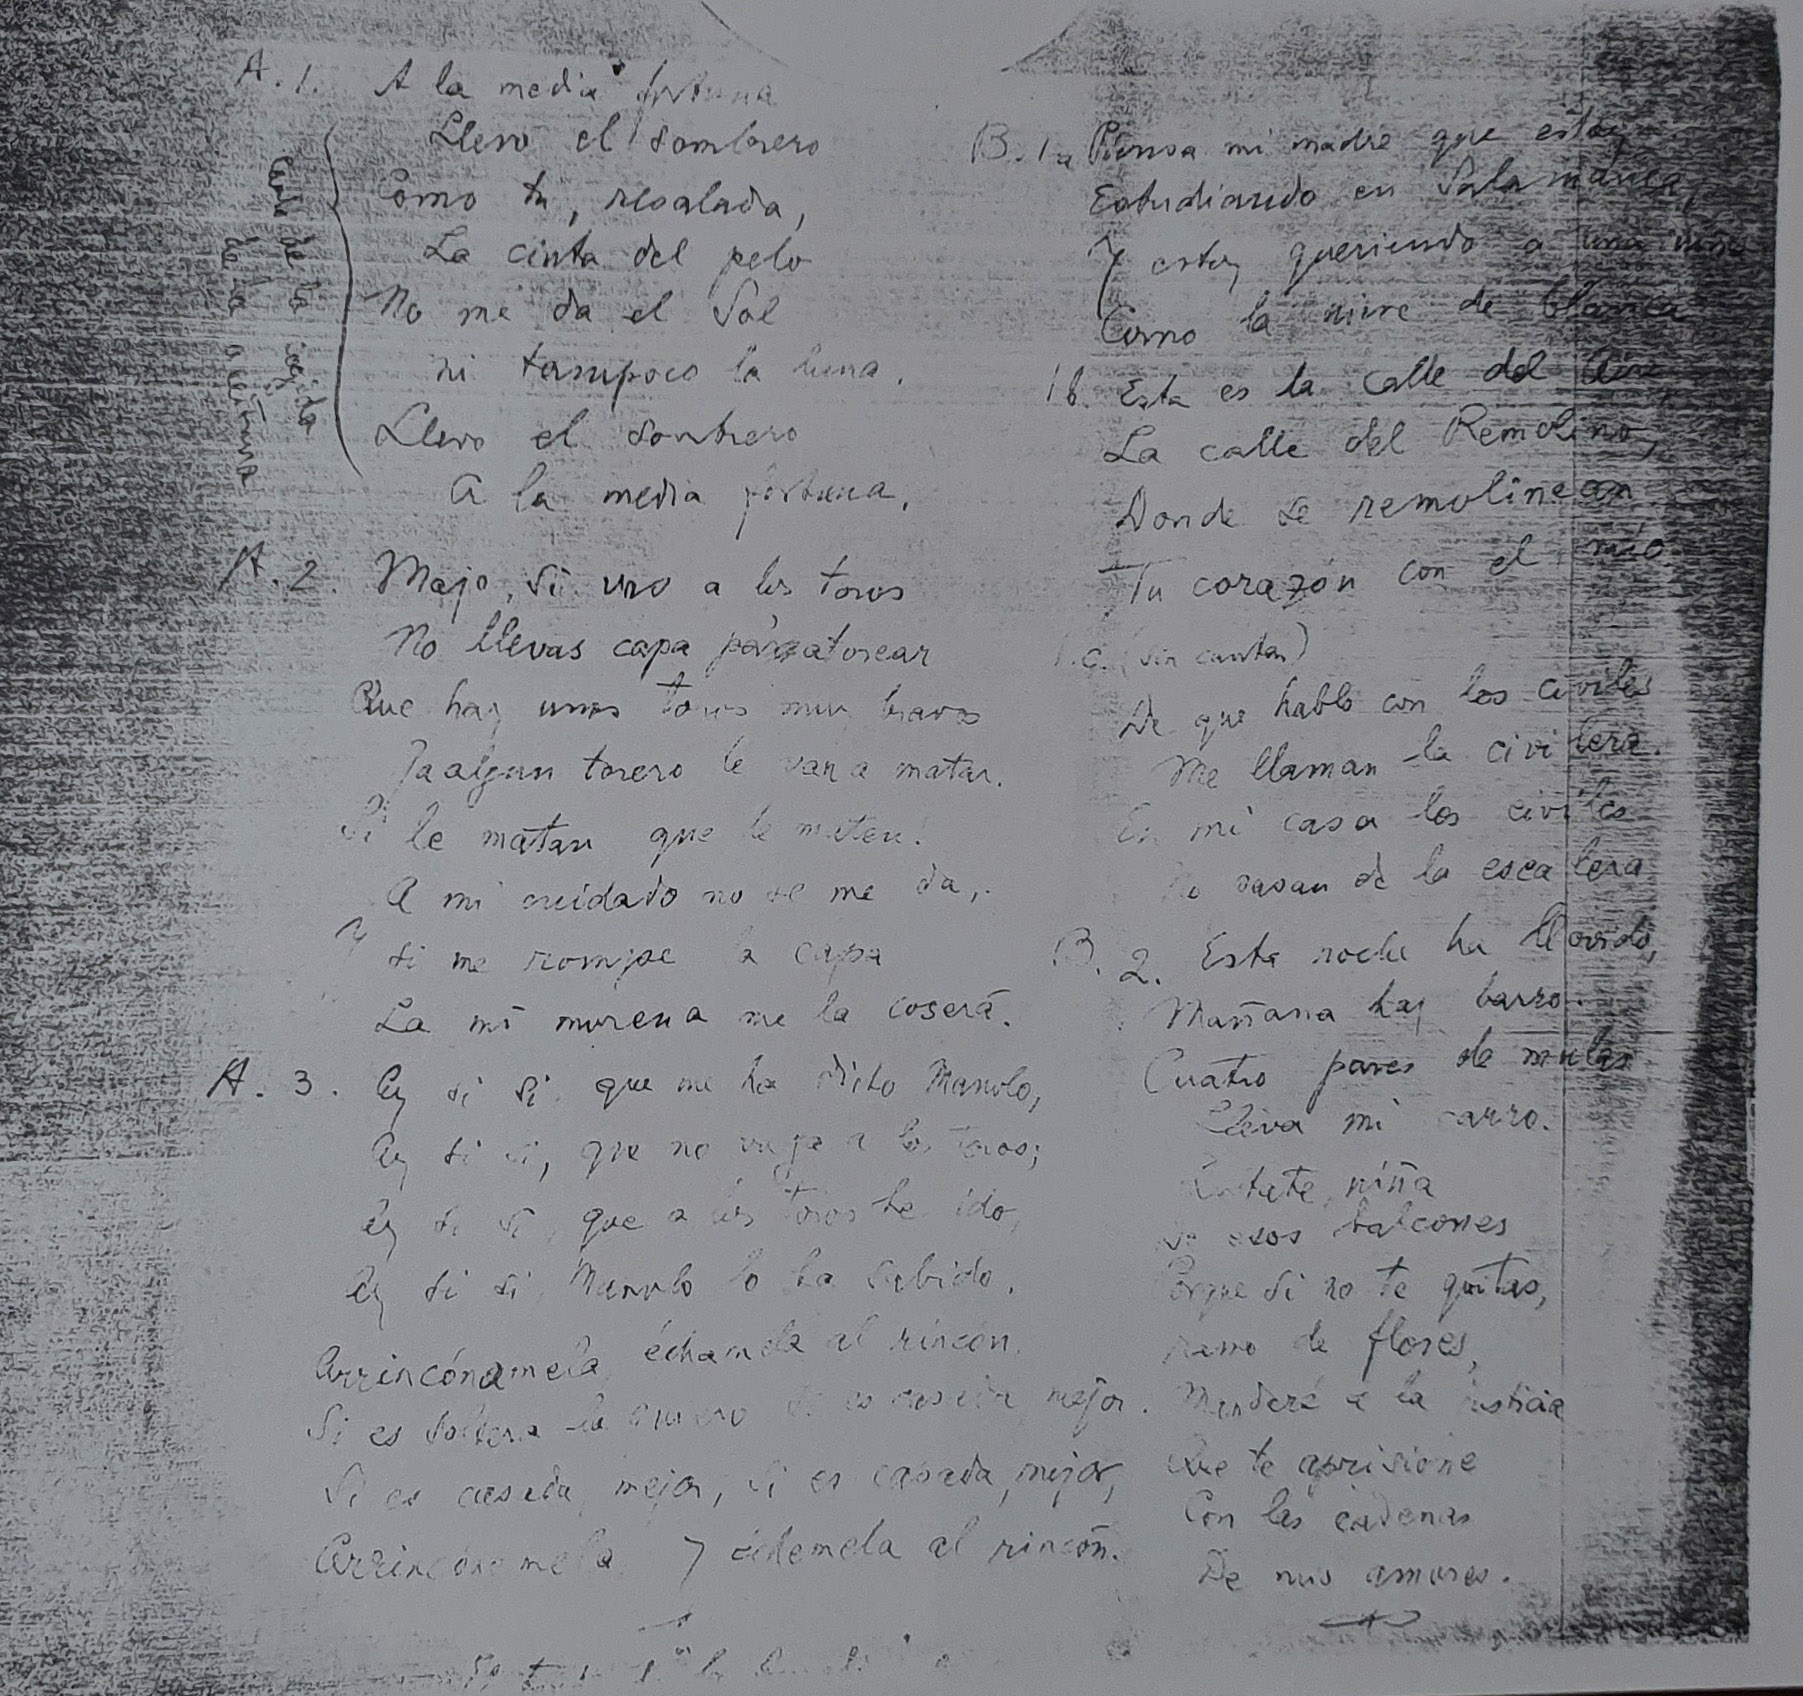 A. 1. A la media fortuna
Llevo el sombrero
Como tu, resalada,
La cinta del pelo
No me da el Sol
ni tampoco la luna.
Llevo el sombrero
A la media fortuna.
de la
de la aceituna
A. 2. Majo, si vas a los toros
No llevas capa para torear
Que hay unos toros muy bravos
Y a algun torero le van a matar.
Si le matan que le maten!
A mi cuidado no se me da,.
Y si me rompe la capa
La mi morena me la coserá.
A. 3. Ay si si que me ha dicho Manolo,
Ay si si, que no vaya a los toros;
Ay si si, que a los toros he ido,
Ay si si Manolo lo ha sabido.
Arrincónamela échamela al rincón.
Si es soltera la quiero si es casada mejor.
Si es casada, mejor, si es casada, mejor,
Arrincónamela y échemela al rincón.
B. 1a Piensa mi madre que estoy
Estudiando en Salamanca,
Y estoy queriendo a una niña
Como la nieve de blanca
1b. Esta es la calle del Aire,
La calle del Remolino,
Donde se remolinean
Tu corazón con el mío.
1.c. (sin cantar)
De que hablo con los civiles
Me llaman la civilera.
En mi casa los civiles
No pasan de la escalera
B. 2. Esta noche ha llovido,
Mañana hay barro.
Cuatro pares de mulas
Lleva mi carro.
Quítate niña
de esos balcones
Porque si no te quitas,
ramo de flores,
Mandaré a la justicia
Que te aprisione
Con las cadenas
De mis amores.